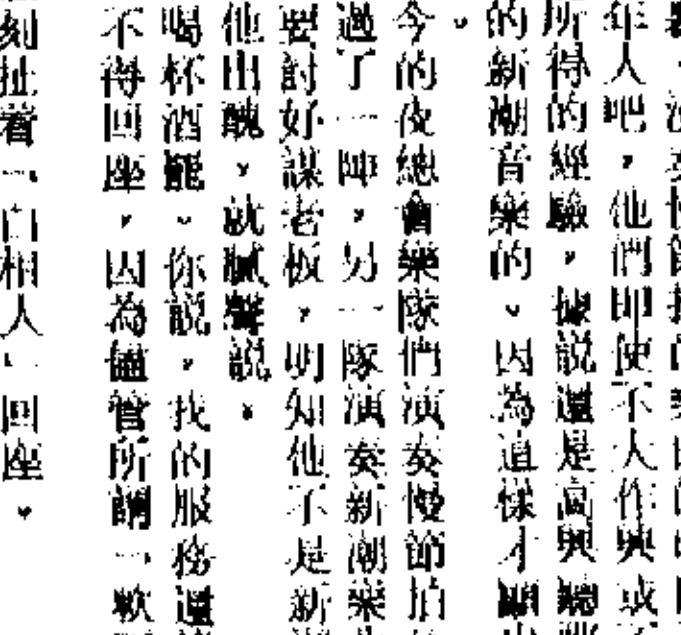 年人吧，他們即使不大作興或
所得的經驗，據説還是高興聽
的新潮音樂的。因為這樣才顯
今的夜總會樂隊們演奏慢節拍
過了一陣，另一隊演奏新潮樂
要討好謀老板，明知他不是新
他出醜，就膩聲説：
喝杯酒罷。你説，我的服務還
不得回座，因為儘管所謂一軟
刻扯着「白相人」回座。